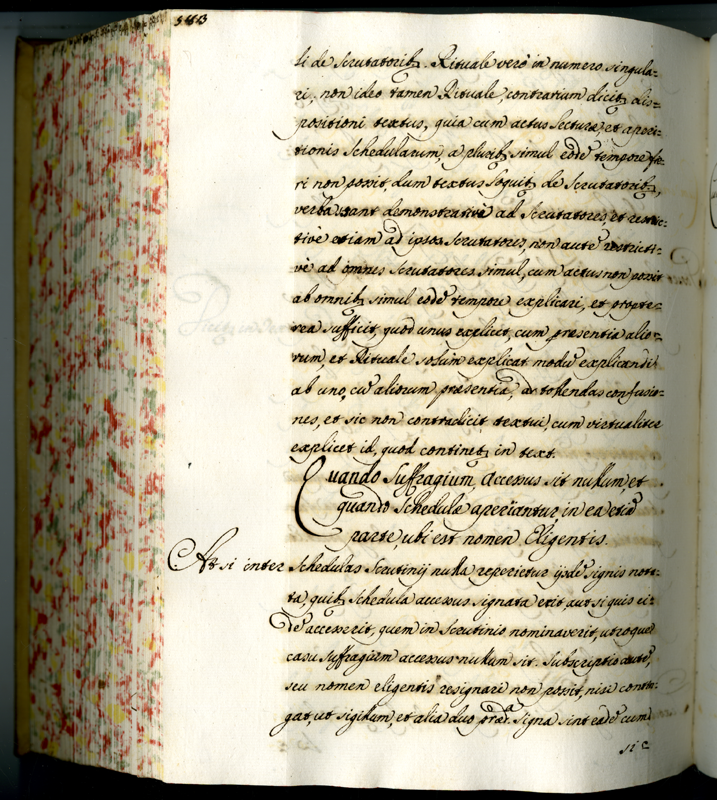 li de Scrutatorib₉. Rituale verò in numero singula-
ri, non ideo tamen Rituale, contrarium dicit₉ dis-
positioni textus, quia cum actus lecturæ, et aperi-
tionis Schedularum, a plurib₉ simul eodē tempore fie-
ri non possit, dum textus loquit₉ de Scrutatorib₉,
verba sunt demonstrativa ad Scrutatores, et restric-
tivè etiam ad ipsos Scrutatores, non autē restricti-
vè ad omnes Scrutatores simul, cum actus non possit
ab omnib₉ simul eodē tempore explicari, et propte-
rea sufficit, quod unus explicit, cum presentia alio-
rum, et Rituale solum explicat modū explicandi
ab uno, cū aliorum præsentia, ac tollendas confusio-
nes, et sic non contradicit textui, cum virtualiter
explicet id, quod continet₉ in text.
Quando Suffragium Accessus sit nullum, et
quando Schedulæ aperiantur in ea etiā
parte, ubi est nomen Eligentis.
At si inter Schedulas Scrutinij nulla reperietur ijsdē signis nota-
ta, quib₉ Schedula accessus signata erit, aut si quis ei-
dē accesserit, quem in Scrutinio nominaverit, utroque
casu suffragium accessus nullum sit. Subscriptio autē,
seu nomen eligentis resignari non possit, nisi contin-
gat, ut sigillum, et alia duo præd.ᵃ signa sint eadē cum
sic